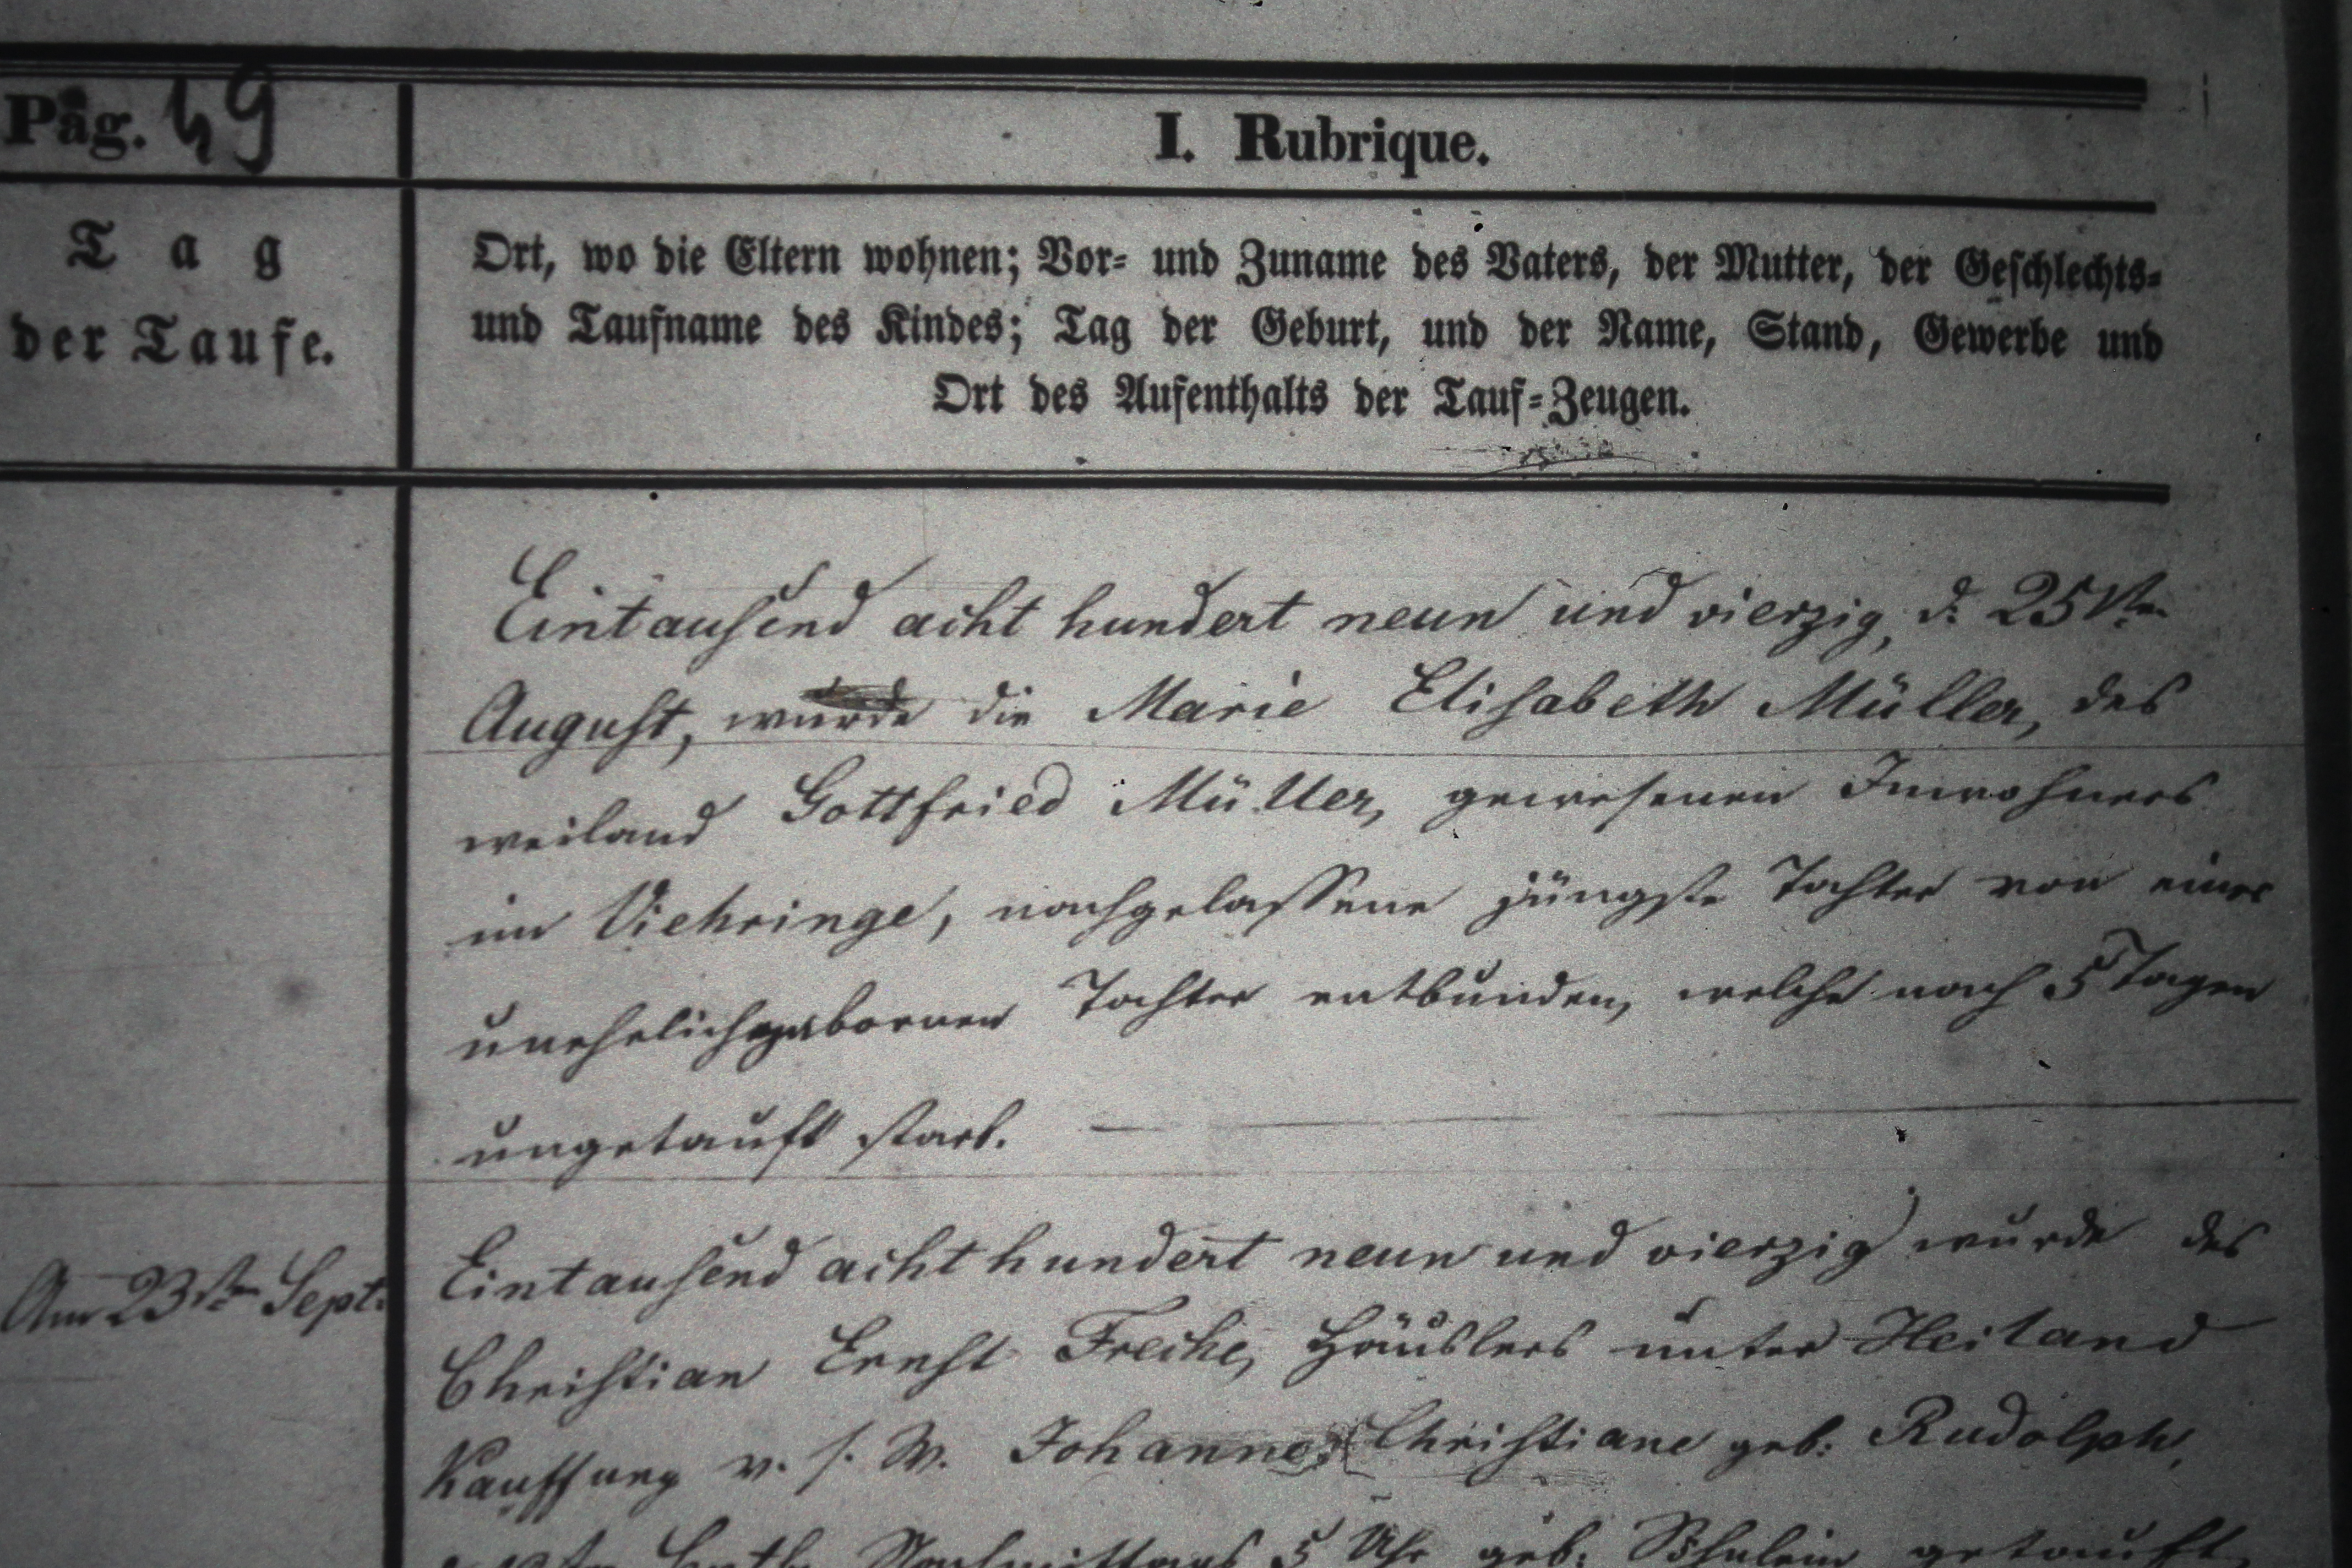 Pag. 49
I. Rubrique.
Tag
der Taufe.
Ort, wo die Eltern wohnen; Vor- und Zuname des Vaters, der Mutter, der Geschlechts-
und Taufname des Kindes; Tag der Geburt, und der Name, Stand, Gewerbe und
Ort des Aufenthalts der Tauf-Zeugen.
Eintausend acht hundert neun und vierzig, d. 25sten
August, wurde die Marie Elisabeth Müller, des
weiland Gottfried Müller, gewesenen Inwohners
im Viehringe, nachgelassene jüngste Tochter von einer
unehelichgebornen Tochter entbunden, welche nach 5 Tagen
ungetauft starb. —
Am 23sten Sept.
Eintausend acht hundert neun und vierzig wurde des
Christian Ernst Freche, Häuslers unter Heiland
Kauffung v. s. W. Johanne Christiane geb: Rudolph,
Nachmittags 5 Uhr geb: Söhnlein getauft